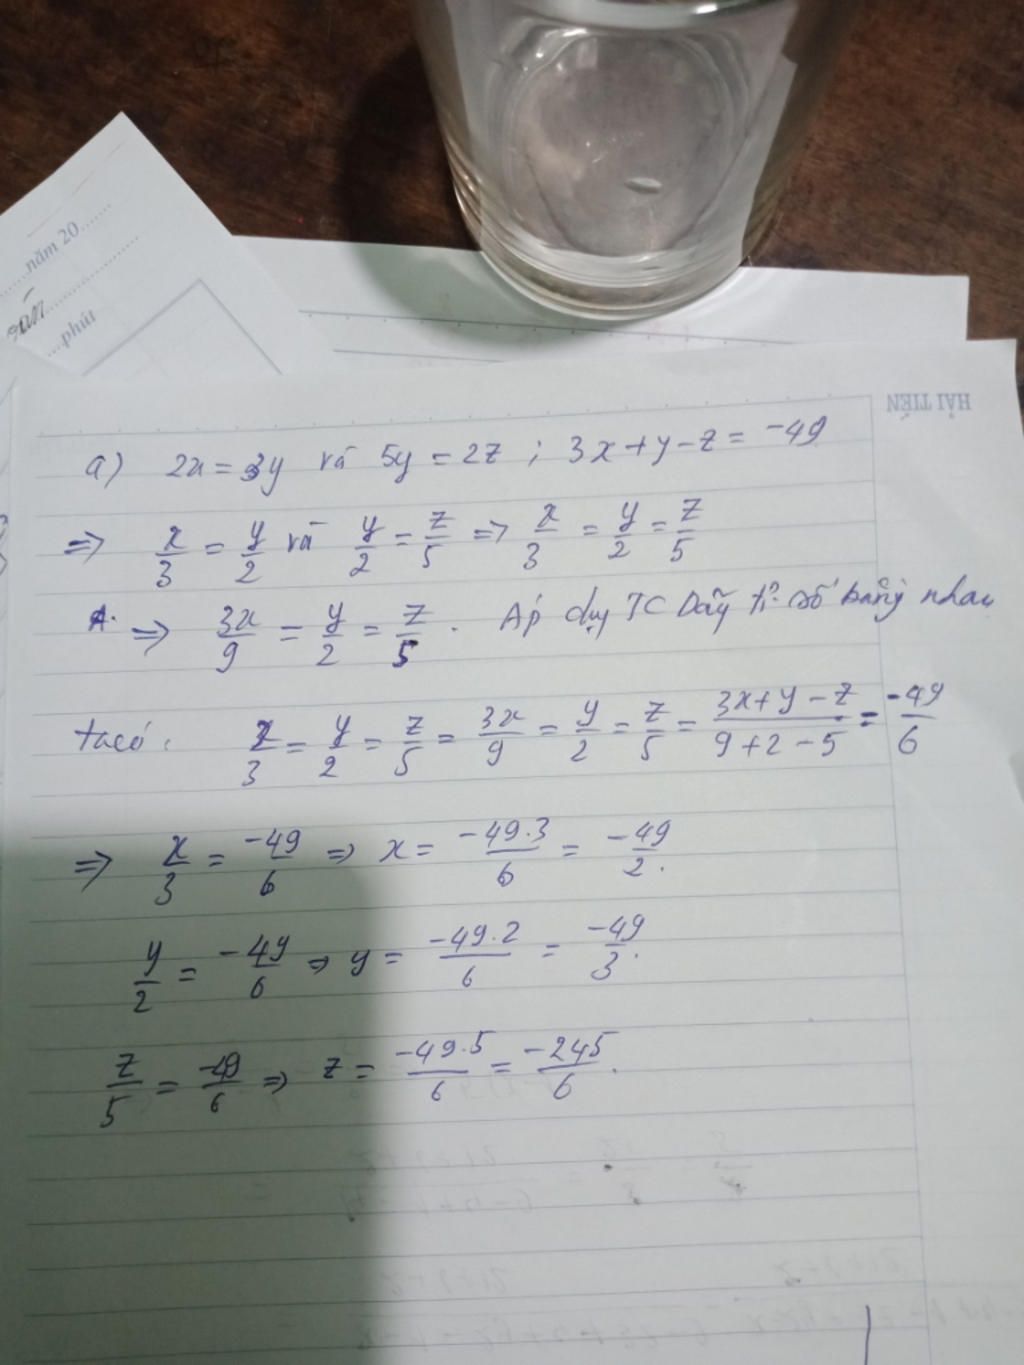 ...năm 20......
...phút
HẢI TIẾN
a) 2x = 3y và 5y = 2z ; 3x + y - z = -49
=> x/3 = y/2 và y/2 = z/5 => x/3 = y/2 = z/5
=> 3x/9 = y/2 = z/5 . Áp dụg TC Dãy tỉ số bằng nhau
ta có: x/3 = y/2 = z/5 = 3x/9 = y/2 = z/5 = (3x + y - z)/(9 + 2 - 5) = -49/6
=> x/3 = -49/6 => x = -49.3/6 = -49/2.
y/2 = -49/6 => y = -49.2/6 = -49/3.
z/5 = -49/6 => z = -49.5/6 = -245/6.